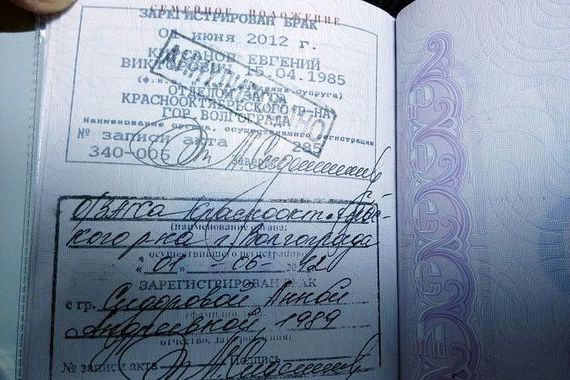 СЕМЕЙНОЕ ПОЛОЖЕНИЕ
ЗАРЕГИСТРИРОВАН БРАК
01 июня 2012 г.
ЕВГЕНИЙ
15.04.1985
ОТДЕЛОМ
КРАСНООКТЯБРЕСКОГО Р-НА
ГОР. ВОЛГОГРАДА
Наименование органа, осуществившего регистрацию
№ записи акта 285
340-006
О/ЗАГСа Краснооктябрь-
кого р-на г. Волгограда
(наименование органа,
осуществившего регистрацию)
"01" 06 2012
ЗАРЕГИСТРИРОВАН БРАК
с гр. Сидоровой Анной
Андреевной, 1989
отчество, дата рождения)
№ записи акта Подпись